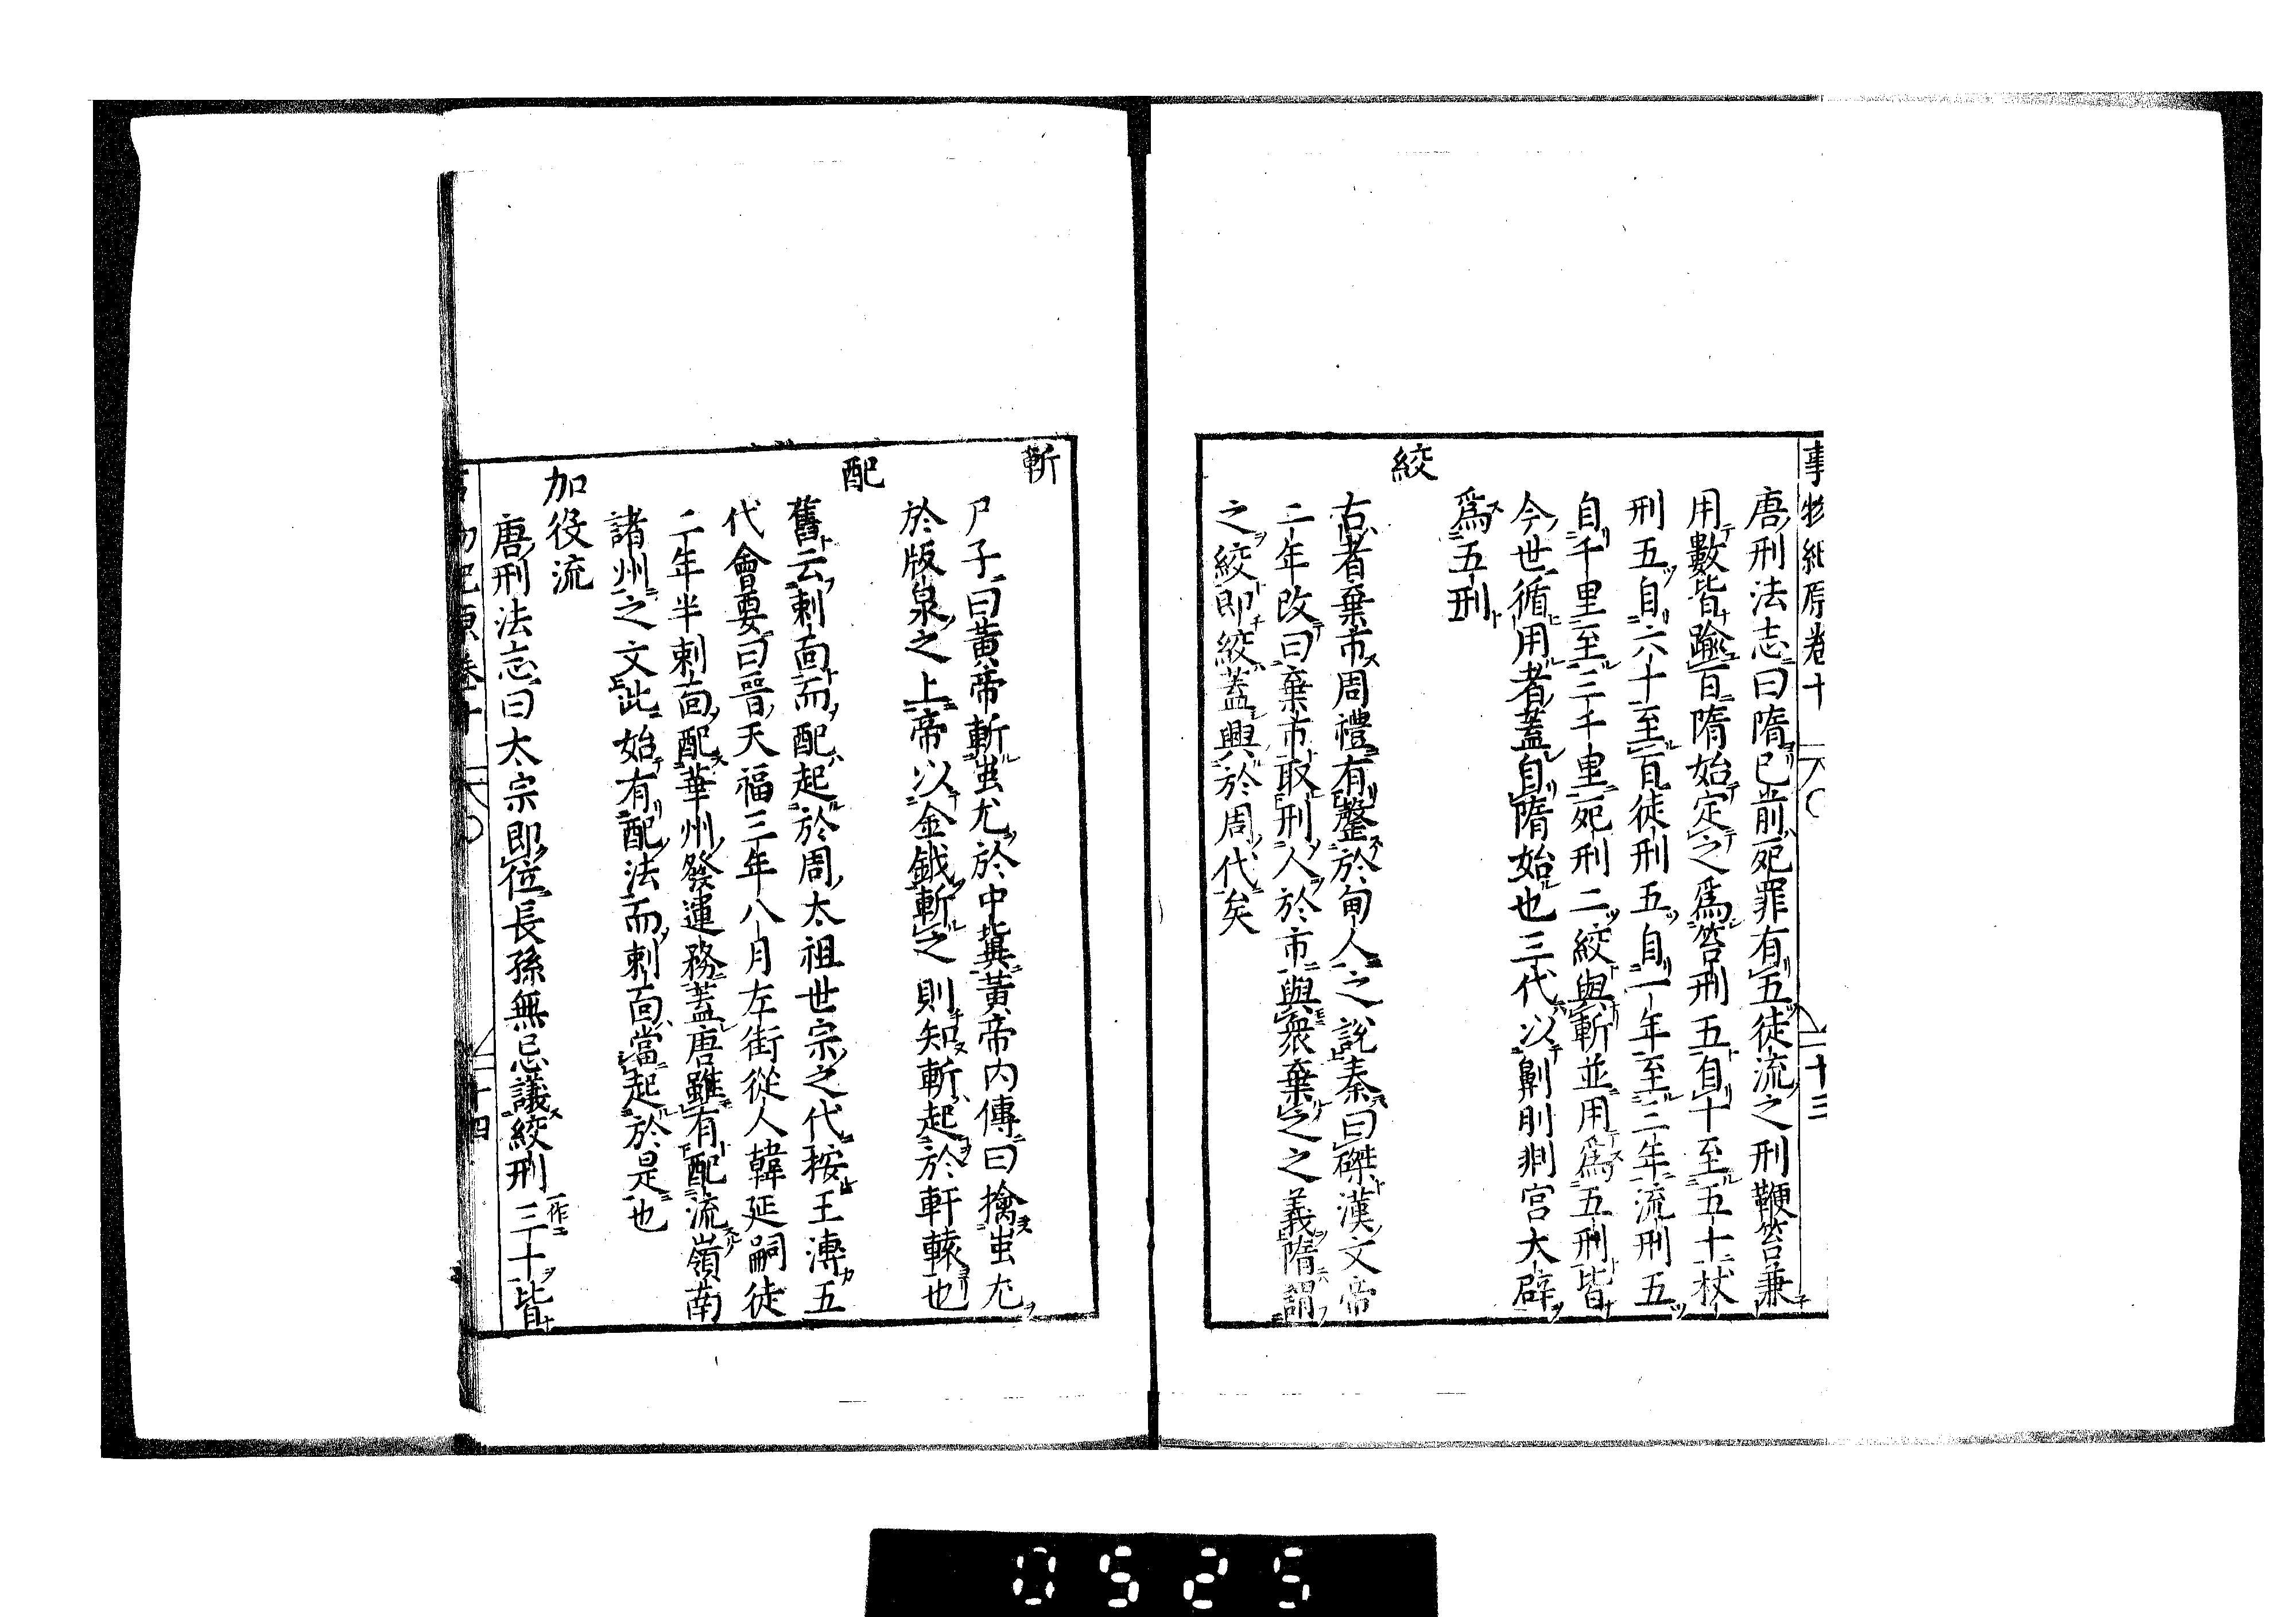 事物紀原卷十 十三
唐刑法志曰隋已前死罪有五徒流之刑鞭笞兼
用數皆踰百隋始定之爲笞刑五自十至五十杖
刑五自六十至百徒刑五自一年至三年流刑五
自千里至三千里死刑二絞與斬並用爲五刑皆
今世循用者蓋自隋始也三代以劓刖剕宮大辟
爲五刑
絞
古者棄市周禮有罄於甸人之說秦曰磔漢文帝
二年改曰棄市取刑人於市與衆棄之之義隋謂
之絞即絞蓋興於周代矣
斬
尸子曰黃帝斬蚩尤於中冀黃帝內傳曰擒蚩尤
於版泉之上帝以金鉞斬之則知斬起於軒轅也
配
舊云刺面而配起於周太祖世宗之代按王溥五
代會要曰晉天福三年八月左街從人韓延嗣徒
二年半刺面配華州發運務蓋唐雖有配流嶺南
諸州之文此始有配法而刺面當起於是也
加役流
唐刑法志曰太宗即位長孫無忌議絞刑三十一作二皆
紀原卷十 十四
0525